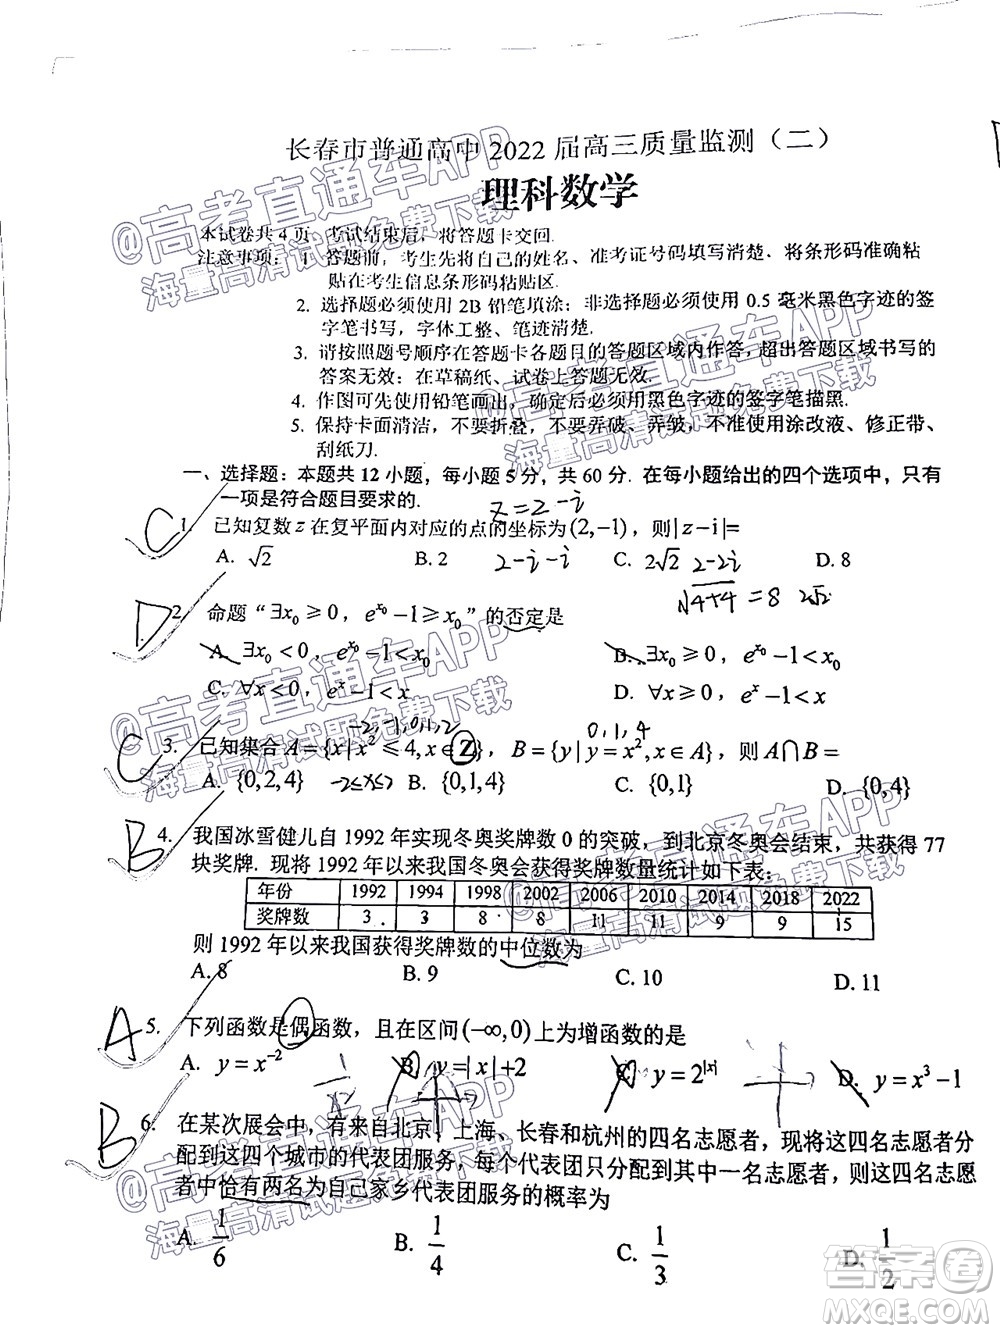 长春市普通高中2022届高三质量监测（二）
理科数学
本试卷共4页. 考试结束后, 将答题卡交回.
注意事项: 1. 答题前, 考生先将自己的姓名、准考证号码填写清楚, 将条形码准确粘
贴在考生信息条形码粘贴区.
2. 选择题必须使用2B铅笔填涂; 非选择题必须使用0.5毫米黑色字迹的签
字笔书写, 字体工整、笔迹清楚.
3. 请按照题号顺序在答题卡各题目的答题区域内作答, 超出答题区域书写的
答案无效; 在草稿纸、试卷上答题无效.
4. 作图可先使用铅笔画出, 确定后必须用黑色字迹的签字笔描黑.
5. 保持卡面清洁, 不要折叠, 不要弄破、弄皱, 不准使用涂改液、修正带、
刮纸刀.
一、选择题: 本题共12小题, 每小题5分, 共60分. 在每小题给出的四个选项中, 只有
一项是符合题目要求的.
z=2-i
C 1. 已知复数z在复平面内对应的点的坐标为(2,-1), 则|z-i|=
A. √2 B. 2 2-i-i C. 2√2 2-2i D. 8
√4+4=8 2√2
D 2. 命题“∃x₀≥0, e^{x₀}-1≥x₀”的否定是
A. ∃x₀<0, e^{x₀}-1<x₀ B. ∃x₀≥0, e^{x₀}-1<x₀
C. ∀x<0, e^x-1<x D. ∀x≥0, e^x-1<x
-2,-1,0,1,2 0,1,4
C 3. 已知集合A={x|x²≤4,x∈Z}, B={y|y=x²,x∈A}, 则A∩B=
A. {0,2,4} -2≤x≤2 B. {0,1,4} C. {0,1} D. {0,4}
B 4. 我国冰雪健儿自1992年实现冬奥奖牌数0的突破, 到北京冬奥会结束, 共获得77
块奖牌. 现将1992年以来我国冬奥会获得奖牌数量统计如下表:
年份 1992 1994 1998 2002 2006 2010 2014 2018 2022
奖牌数 3 3 8 8 11 11 9 9 15
则1992年以来我国获得奖牌数的中位数为
A. 8 B. 9 C. 10 D. 11
A 5. 下列函数是偶函数, 且在区间(-∞,0)上为增函数的是
A. y=x^{-2} B. y=|x|+2 C. y=2^{|x|} D. y=x³-1
B 6. 在某次展会中, 有来自北京、上海、长春和杭州的四名志愿者, 现将这四名志愿者分
配到这四个城市的代表团服务, 每个代表团只分配到其中一名志愿者, 则这四名志愿
者中恰有两名为自己家乡代表团服务的概率为
A. 1/6 B. 1/4 C. 1/3 D. 1/2
@高考直通车APP
海量高清试题免费下载
@高考直通车APP
海量高清试题免费下载
@高考直通车APP
海量高清试题免费下载
@高考直通车APP
海量高清试题免费下载
@高考直通车APP
海量高清试题免费下载
答案圈
MXQE.COM